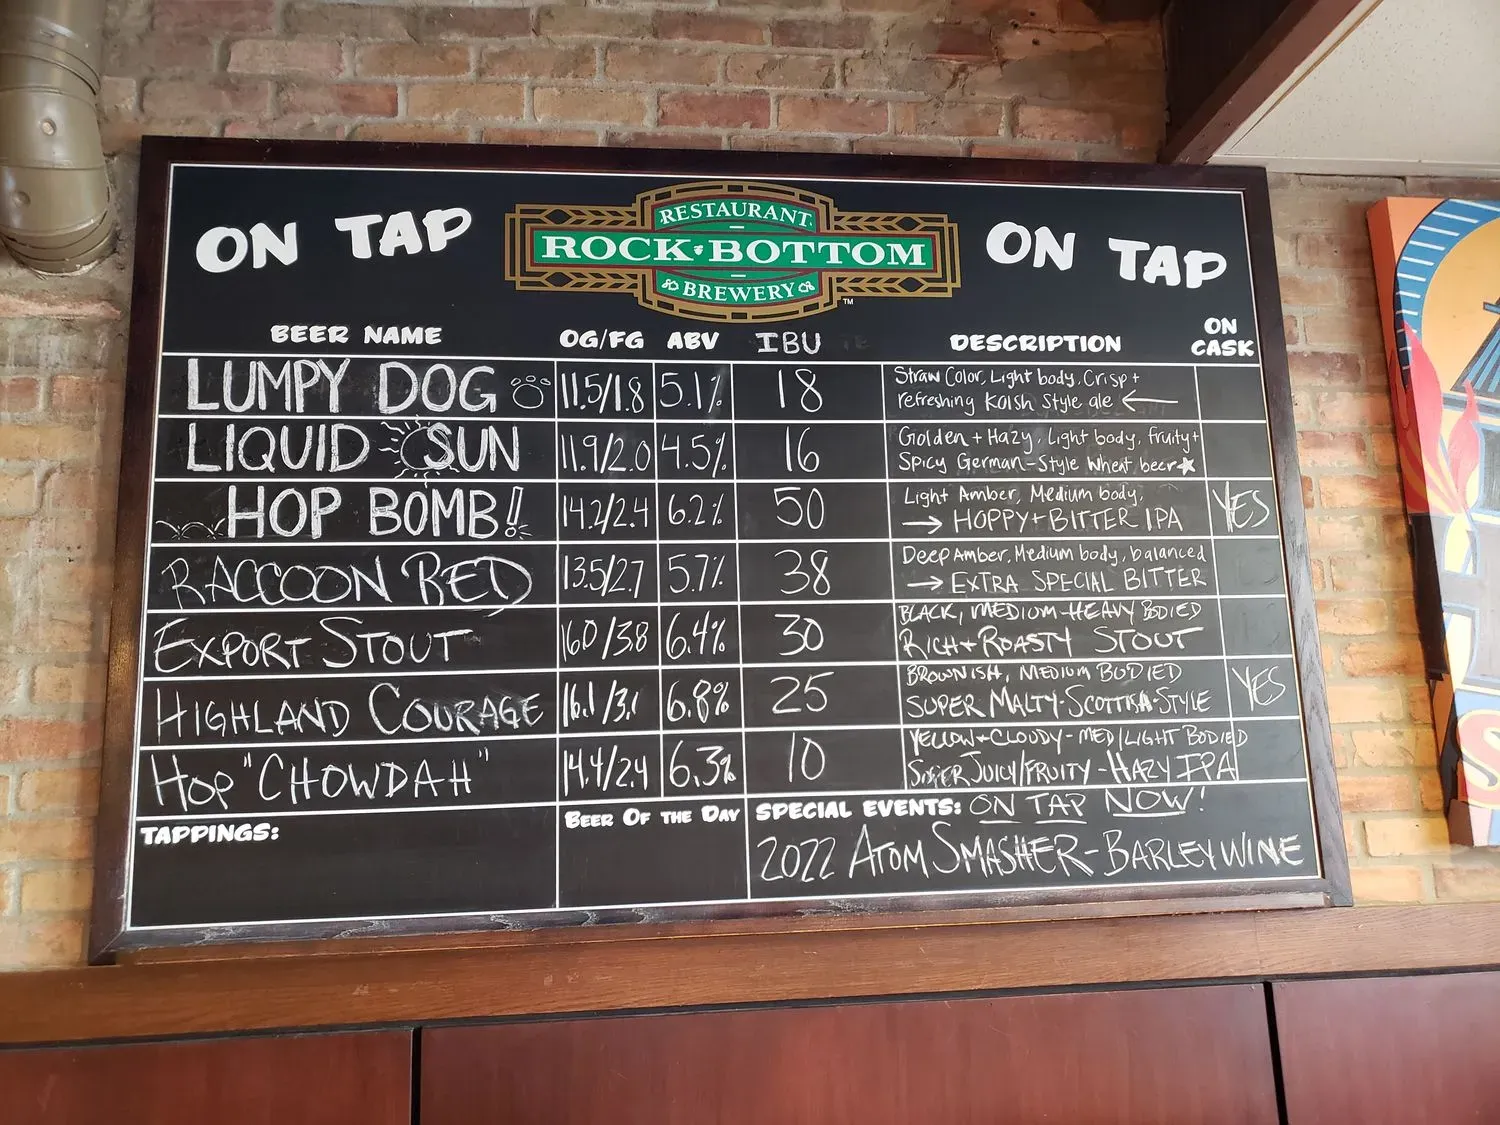 ON TAP
RESTAURANT
ROCK BOTTOM
BREWERY
TM
ON TAP
BEER NAME OG/FG ABV IBU DESCRIPTION ON CASK
LUMPY DOG 11.5/1.8 5.1% 18 Straw Color, Light body, Crisp +
refreshing Kolsh Style ale ←
LIQUID SUN 11.9/2.0 4.5% 16 Golden + Hazy, Light body, fruity +
Spicy German-Style Wheat beer ★
HOP BOMB! 14.2/2.4 6.2% 50 Light Amber, Medium body, YES
→ HOPPY + BITTER IPA
RACCOON RED 13.5/2.7 5.7% 38 Deep Amber, Medium body, balanced
→ EXTRA SPECIAL BITTER
EXPORT STOUT 16.0/3.8 6.4% 30 BLACK, MEDIUM-HEAVY BODIED
RICH + ROASTY STOUT
HIGHLAND COURAGE 16.1/3.1 6.8% 25 BROWNISH, MEDIUM BODIED YES
SUPER MALTY-SCOTTISH-STYLE
HOP "CHOWDAH" 14.4/2.4 6.3% 10 YELLOW + CLOUDY - MED/LIGHT BODIED
SUPER JUICY/FRUITY - HAZY IPA
TAPPINGS:
BEER OF THE DAY
SPECIAL EVENTS: ON TAP NOW!
2022 ATOM SMASHER - BARLEYWINE
S